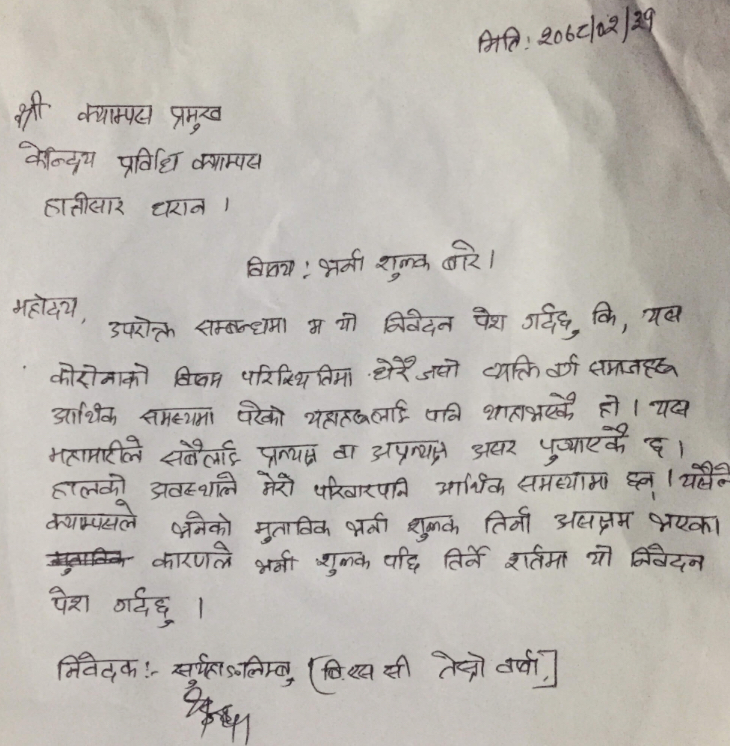 मिति: २०७८/०२/३१
श्री क्याम्पस प्रमुख
केन्द्रिय प्रविधि क्याम्पस
हात्तीसार धरान ।
बिषय : भर्ना शुल्क बारे ।
महोदय,
उपरोक्त सम्बन्धमा म यो निवेदन पेश गर्दछु कि, यस
कोरोनाको बिषम परिस्थितिमा धेरै जसो व्यक्ति वर्ग समाजहरू
आर्थिक समस्यामा परेको यहाहरूलाई पनि थाहाभएकै हो । यस
महामारीले सबैलाई प्रत्यक्ष वा अप्रत्यक्ष असर पुर्‍याएकै छ ।
हालको अवस्थाले मेरो परिवारपनि आर्थिक समस्यामा छन् । यसैले
क्याम्पसले भनेको मुताविक भर्ना शुल्क तिर्ना असक्षम भएका
मुताविक कारणले भर्ना शुल्क पछि तिर्ने शर्तमा यो निवेदन
पेश गर्दछु ।
निवेदक :- लिम्बु [बि.एस सी तेस्रो वर्ष]